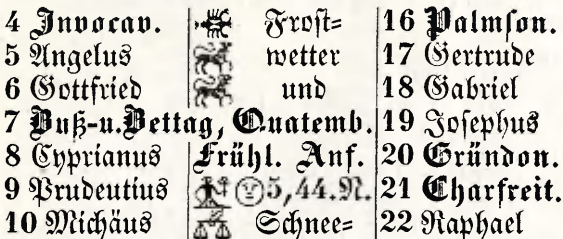 4 Invocav. Frost= 16 Palmson.
5 Angelus wetter 17 Gertrude
6 Gottfried und 18 Gabriel
7 Buß-u.Bettag, Quatemb. 19 Josephus
8 Cyprianus Frühl. Anf. 20 Gründon.
9 Prudentius 5,44.N. 21 Charfreit.
10 Michäus Schnee= 22 Raphael